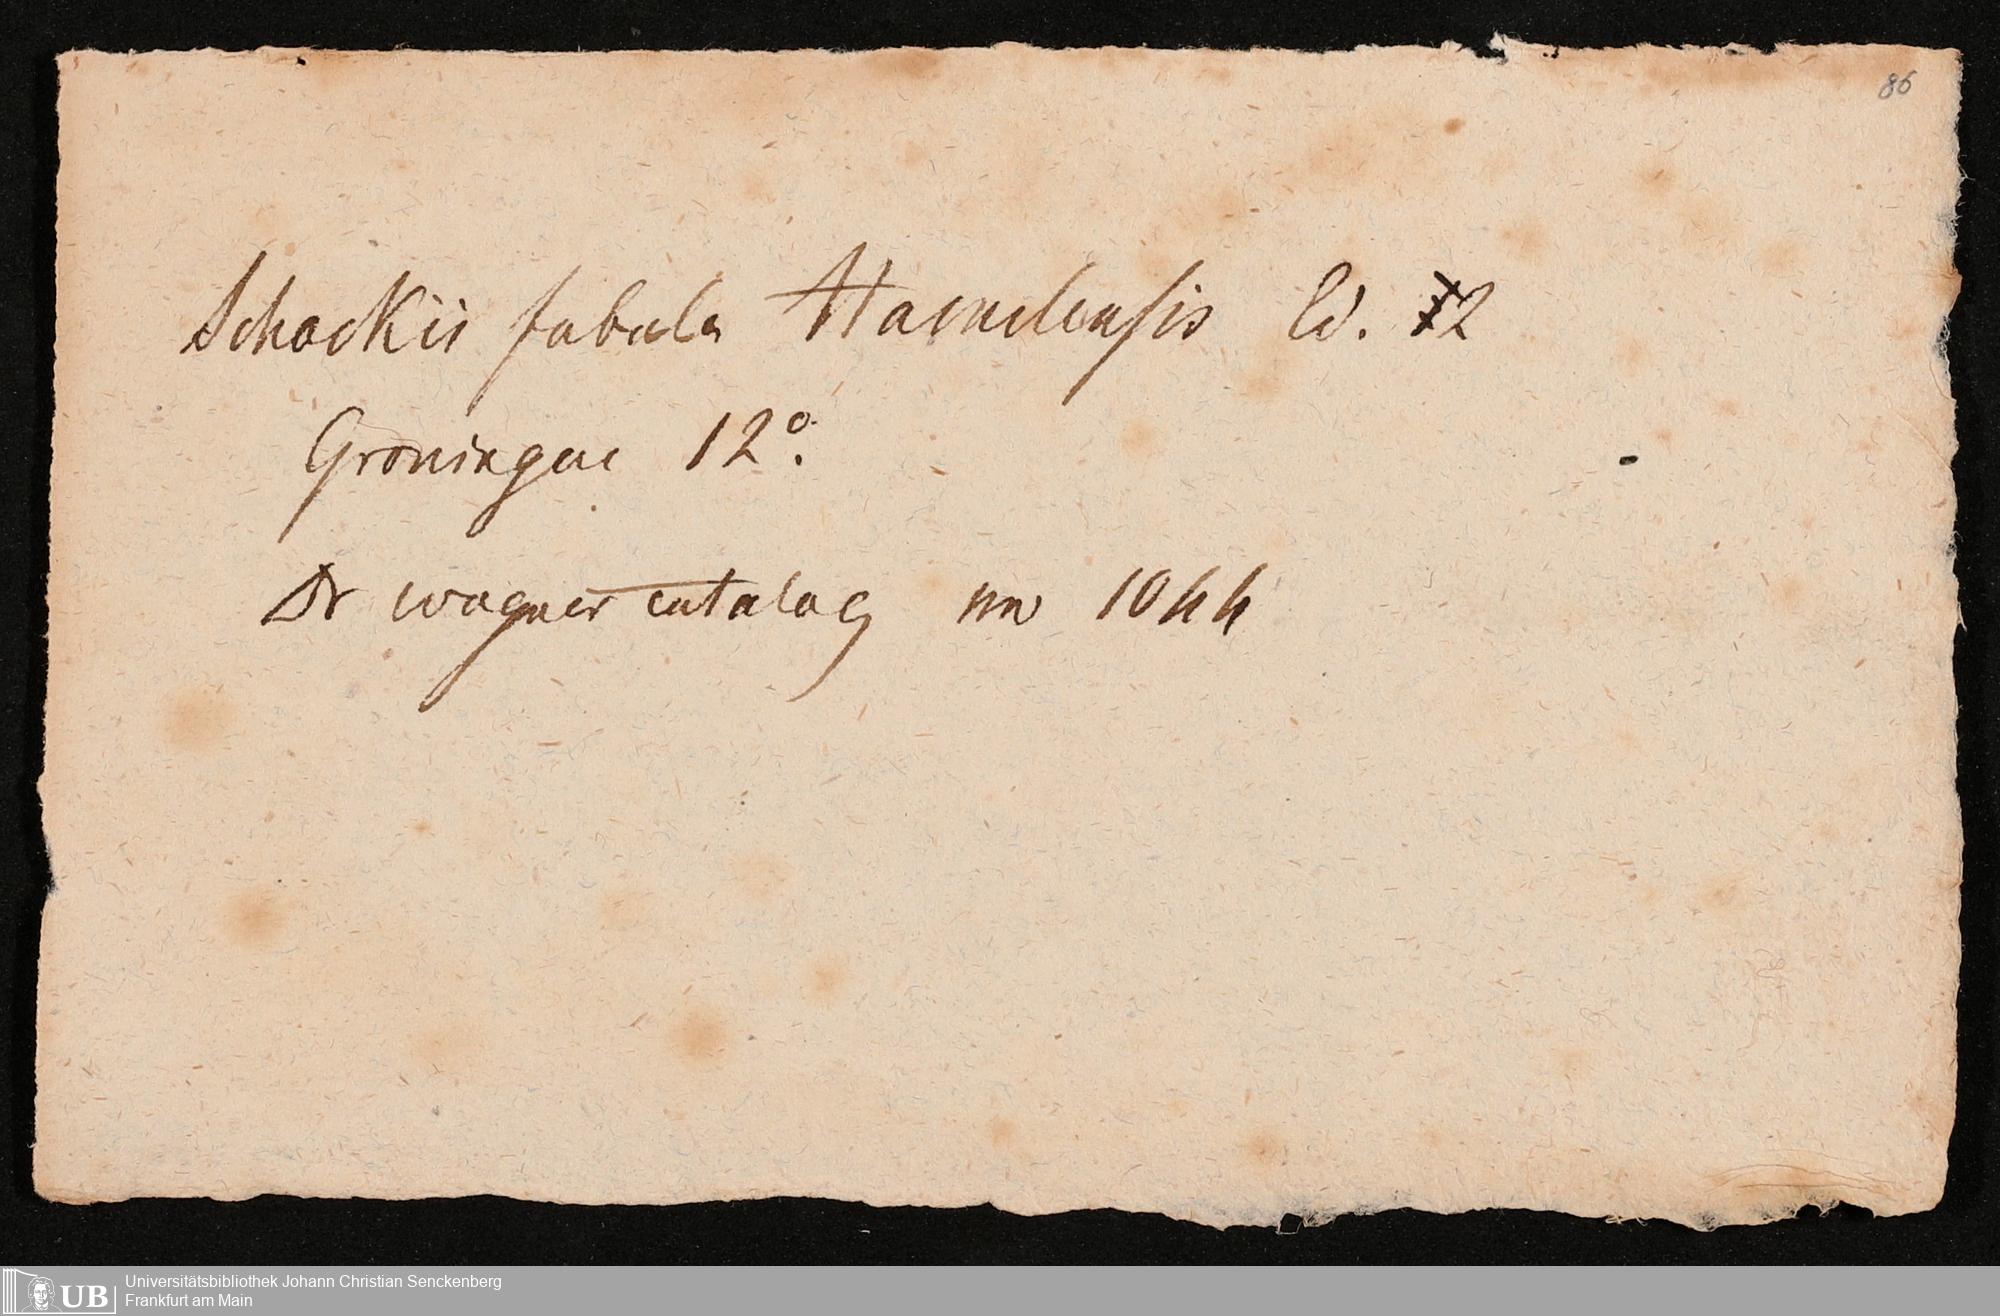 86
Schockii fabula Hamelensis Ed. 2
Groningae 12º.
Dr Wagner catalog no 1044
UB Universitätsbibliothek Johann Christian Senckenberg
Frankfurt am Main